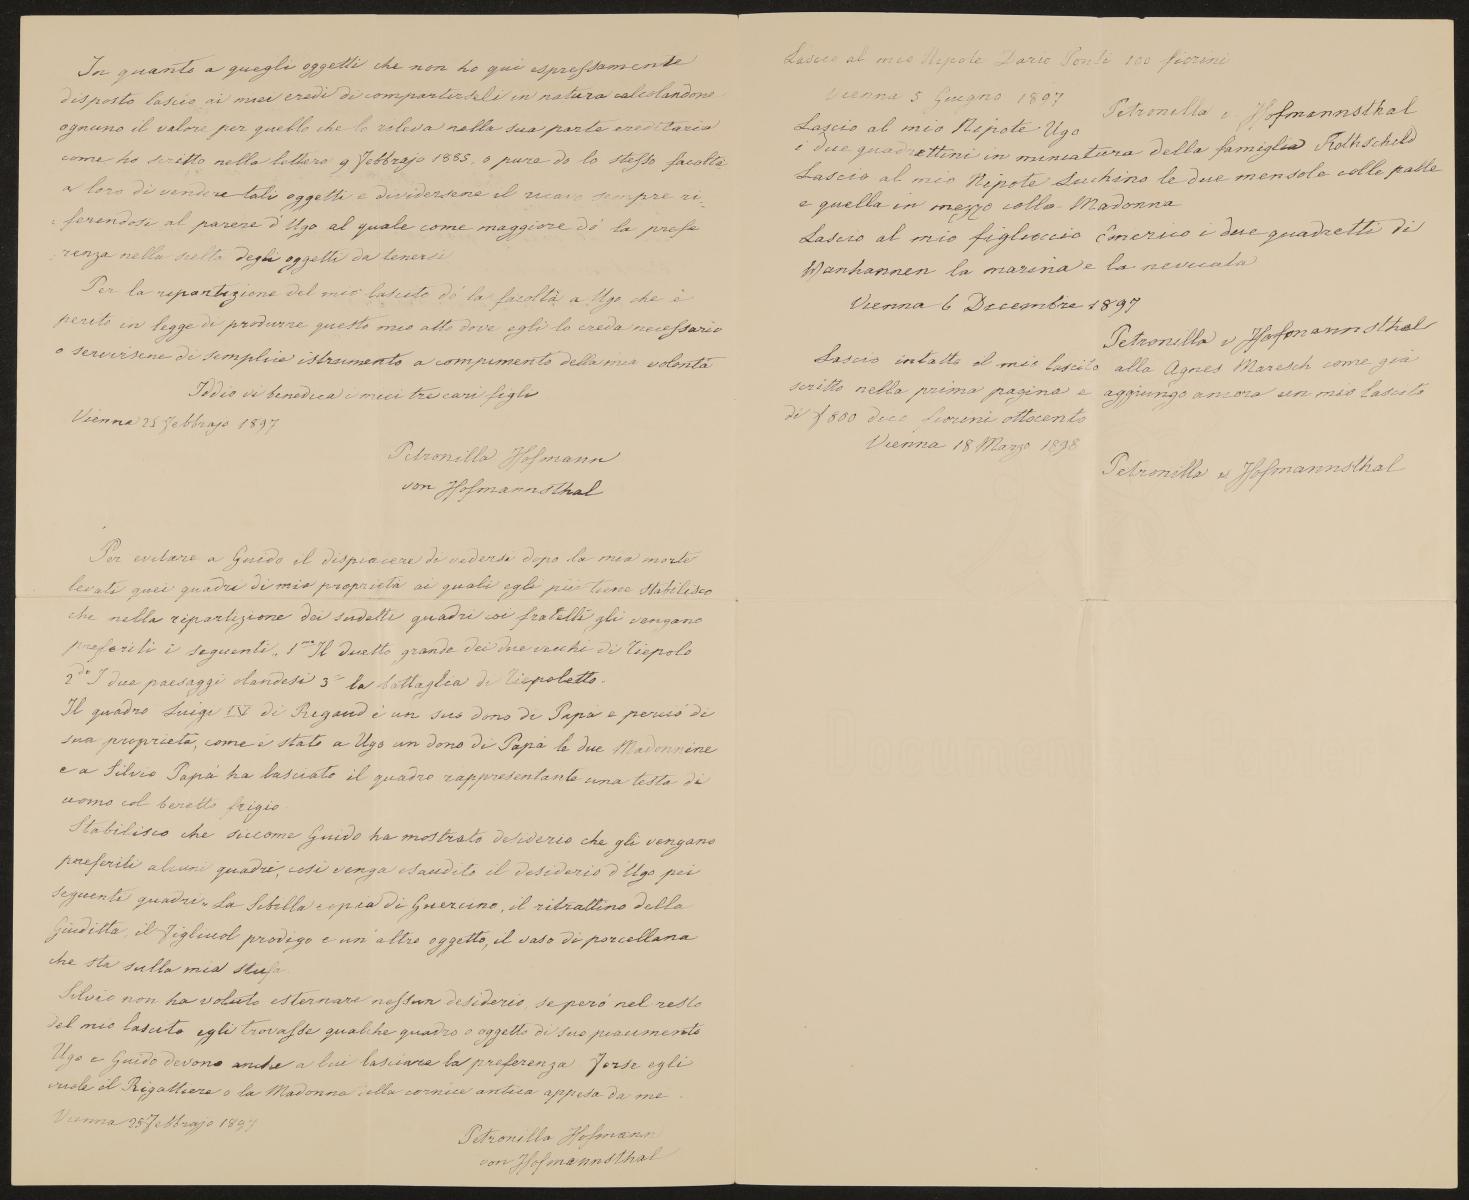 In quanto a quegli oggetti che non ho qui espressamente
disposto lascio ai miei eredi di compartirseli in natura calcolandone
ognuno il valore per quello che lo rileva nella sua parte ereditaria
come ho scritto nella lettera 9 Febbrajo 1885, o pure do lo stesso facoltà
a loro di vendere tali oggetti e dividersene il ricavo sempre ri-
ferendosi al parere d'Ugo al quale come maggiore dò la prefe
renza nella scelta degli oggetti da tenersi
Per la repartizione del mio lascito dò la facoltà a Ugo che è
perito in legge di produrre questo mio atto dove egli lo creda necessario
o servirsene di semplice istrumento a compimento della mia volontà
Iddio vi benedica i miei tre cari figli
Vienna 25 Febbrajo 1897
Petronilla Hofmann
von Hofmannsthal
Per evitare a Guido il dispiacere di vedersi dopo la mia morte
levati quei quadri di mia proprietà ai quali egli più tiene stabilisco
che nella ripartizione dei sudetti quadri coi fratelli gli vengano
preferiti i seguenti, 1mo Il duetto grande dei due vecchi di Tiepolo
2do I due paesaggi olandesi 3o la battaglia di Tiepoletto.
Il quadro Luigi IV di Regaud è un suo dono di Papà e perciò di
sua proprietà, come è stato a Ugo un dono di Papà le due Madonnine
e a Silvio Papà ha lasciato il quadro rappresentante una testa di
uomo col beretto frigio.
Stabilisco che siccome Guido ha mostrato desiderio che gli vengano
preferiti alcuni quadri, così venga esaudito il desiderio d'Ugo pei
seguenti quadri. La Sibilla copia di Guercino, il ritrattino della
Giuditta, il Figliuol prodigo e un'altro oggetto, il vaso di porcellana
che sta sulla mia stufa.
Silvio non ha voluto esternare nessun desiderio, se però nel resto
del mio lascito egli trovasse qualche quadro o oggetto di suo piacimento
Ugo e Guido devono anche a lui lasciare la preferenza Forse egli
vuole il Rigattiere o la Madonna colla cornice antica appesa da me.
Vienna 25 Febbrajo 1897
Petronilla Hofmann
von Hofmannsthal
Lascio al mio Nipote Dario Ponti 100 fiorini
Vienna 5 Giugno 1897
Petronilla v Hofmannsthal
Lascio al mio Nipote Ugo
i due quadrettini in miniatura della famiglia Rothschild
Lascio al mio Nipote Luchino le due mensole colle palle
e quella in mezzo colla Madonna
Lascio al mio figlioccio Emerico i due quadretti di
Wanhannen la marina e la nevicata
Vienna 6 Decembre 1897
Petronilla v Hofmannsthal
Lascio intatto il mio lascito alla Agnes Maresch come già
scritto nella prima pagina e aggiungo ancora un mio lascito
di f 800 dico fiorini ottocento
Vienna 18 Marzo 1898
Petronilla v Hofmannsthal